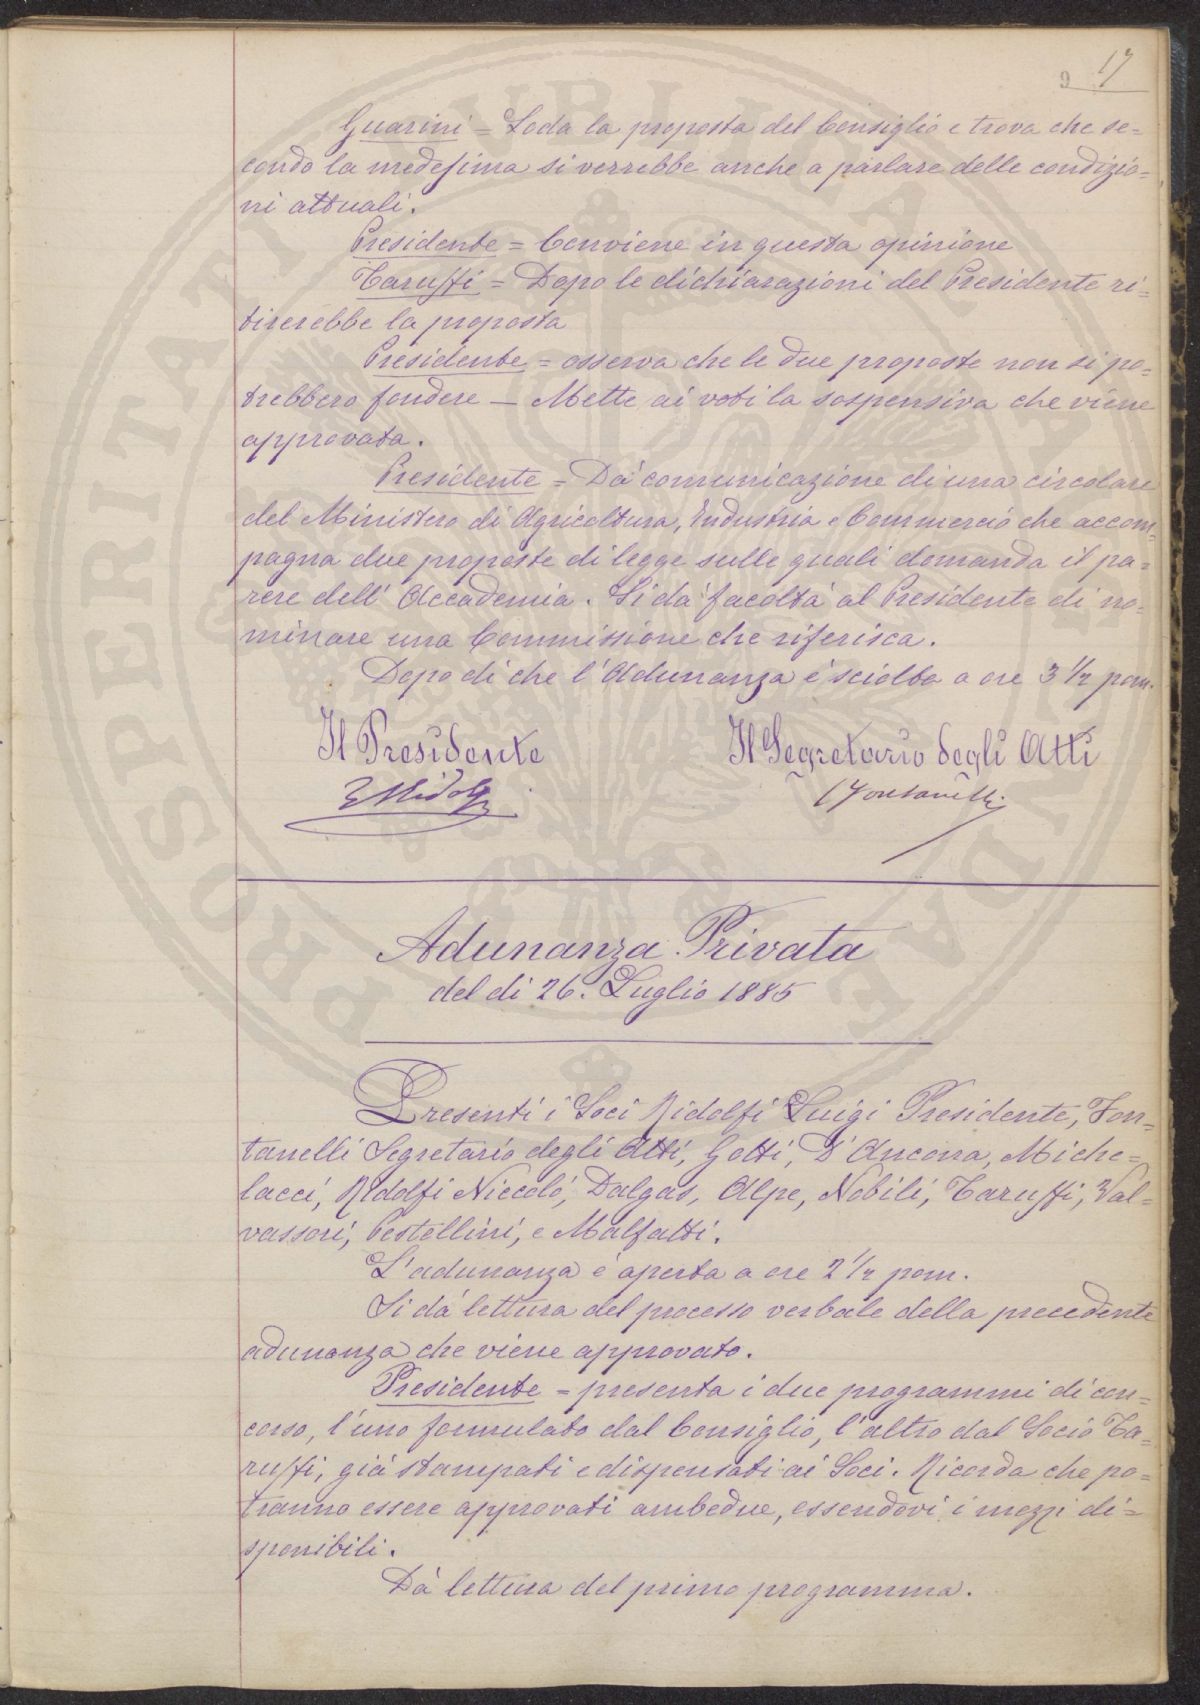 17
9
Guarini = Loda la proposta del Consiglio e trova che se=
condo la medesima si verrebbe anche a parlare delle condizio=
ni attuali.
Presidente = Conviene in questa opinione
Taruffi = Dopo le dichiarazioni del Presidente ri=
tirerebbe la proposta
Presidente = osserva che le due proposte non si po=
trebbero fondere — Mette ai voti la sospensiva che viene
approvata.
Presidente = Dà comunicazione di una circolare
del Ministero di Agricoltura, Industria e Commercio che accom=
pagna due proposte di legge sulle quali domanda il pa=
rere dell' Accademia. Si dà facoltà al Presidente di no=
minare una Commissione che riferisca.
Dopo di che l'Adunanza è sciolta a ore 3 1/2 pom.
Il Presidente Il Segretario degli Atti
Fontanelli
Adunanza Privata
del dì 26. Luglio 1885
Presenti i Soci Ridolfi Luigi Presidente, Fon=
tanelli Segretario degli Atti, Gotti, D'Ancona, Miche=
lacci, Ridolfi Niccolò, Dalgas, Alpe, Nobili, Taruffi, Val=
vassori, Pestellini, e Malfatti.
L'adunanza è aperta a ore 2 1/2 pom.
Si dà lettura del processo verbale della precedente
adunanza che viene approvato.
Presidente = presenta i due programmi di con=
corso, l'uno formulato dal Consiglio, l'altro dal Socio Ta=
ruffi, già stampati e dispensati ai Soci. Ricorda che po=
tranno essere approvati ambedue, essendovi i mezzi di=
sponibili.
Dà lettura del primo programma.
PROSPERITATI PVBLICAE